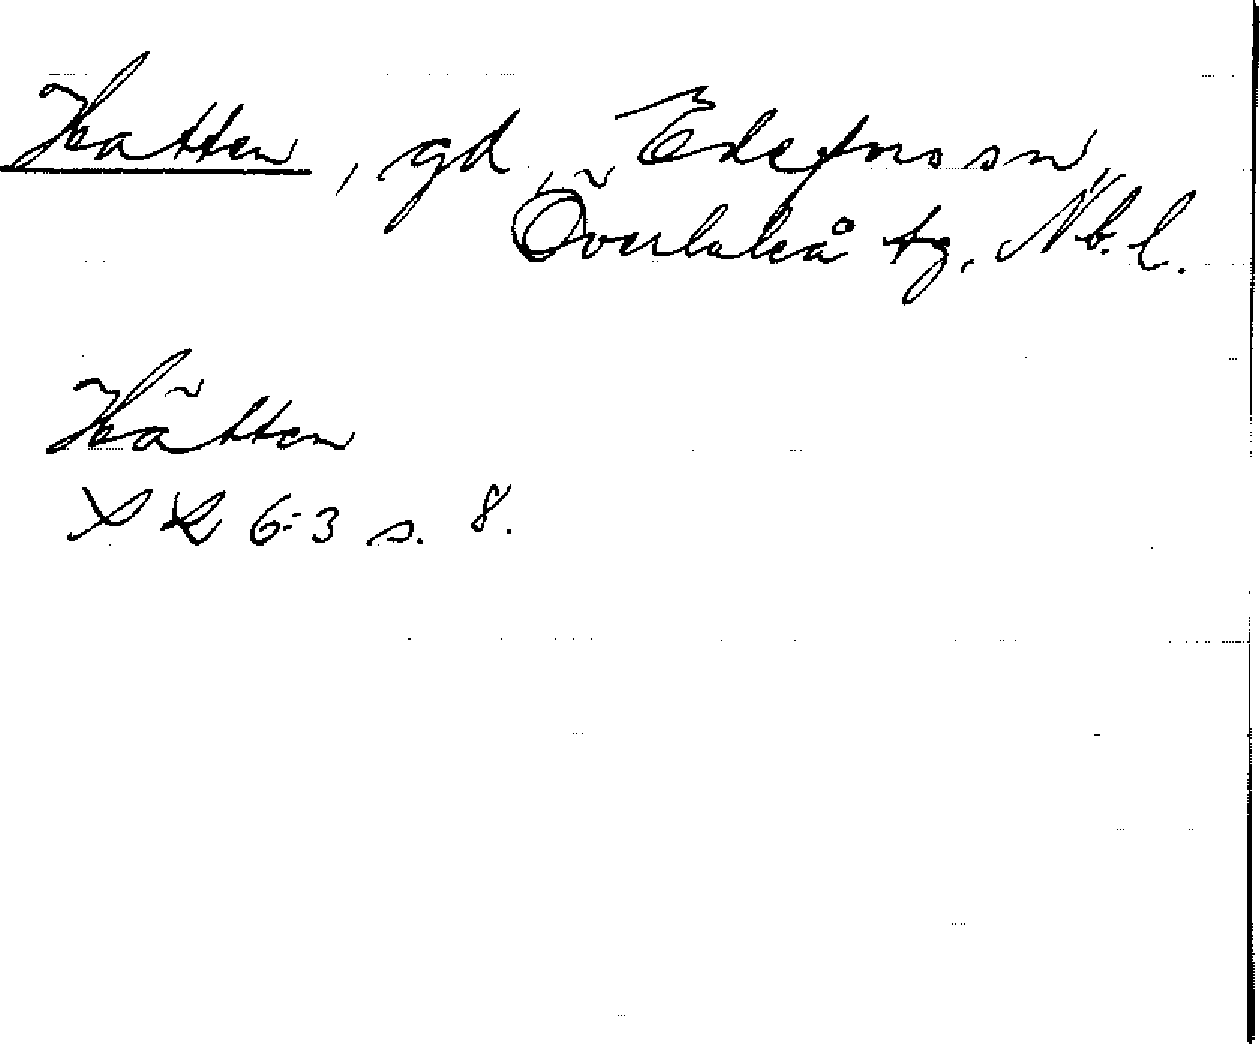 Hatten, gd, Edefors sn,
Överluleå tg, Nb. l.
Hätten
XL 6:3 s. 8.